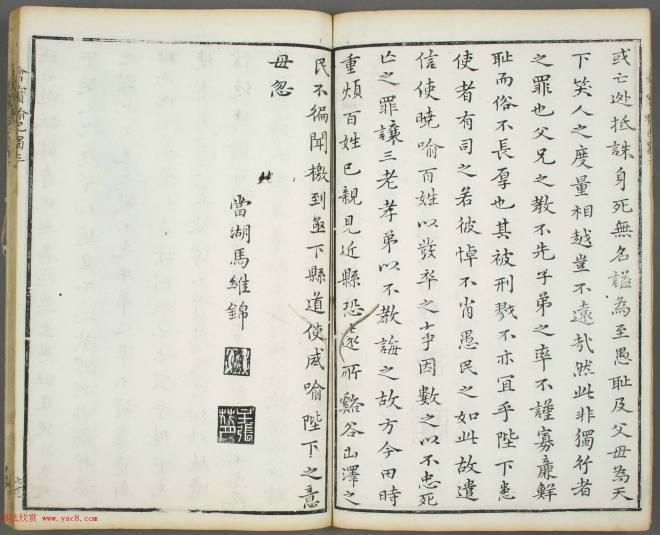 或亡逃抵誅身死無名謚為至愚恥及父母為天
下笑人之度量相越豈不遠哉然此非獨行者
之罪也父兄之教不先子弟之率不謹寡廉鮮
恥而俗不長厚也其被刑戮不亦宜乎陛下患
使者有司之若彼悼不肖愚民之如此故遣
信使曉喻百姓以發卒之事因數之以不忠死
亡之罪讓三老孝弟以不教誨之故方今田時
重煩百姓已親見近縣恐遠所谿谷山澤之
民不徧聞檄到亟下縣道使咸喻陛下之意
毋忽
當湖馬維錦
书法欣赏 www.yac8.com